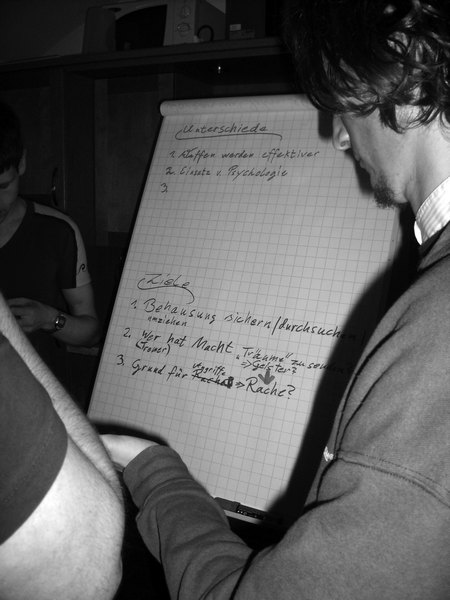 Unterschiede
1. Waffen werden effektiver
2. Einsatz v. Psychologie
3.
Ziele
1. Behausung sichern/durchsuchen/
umziehen
2. Wer hat Macht "Träume" zu senden
(Tromer) => Geister?
3. Grund für Angriffe => Rache?